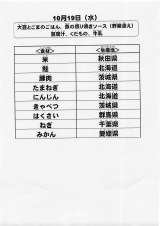 10月19日（水）
大豆とごまのごはん、豚の照り焼きソース（野菜添え）
豚汁、くだもの、牛乳
＜食材＞ ＜産地＞
米 秋田県
鮭 北海道
豚肉 茨城県
たまねぎ 北海道
にんじん 北海道
きゃべつ 茨城県
はくさい 群馬県
ねぎ 千葉県
みかん 愛媛県